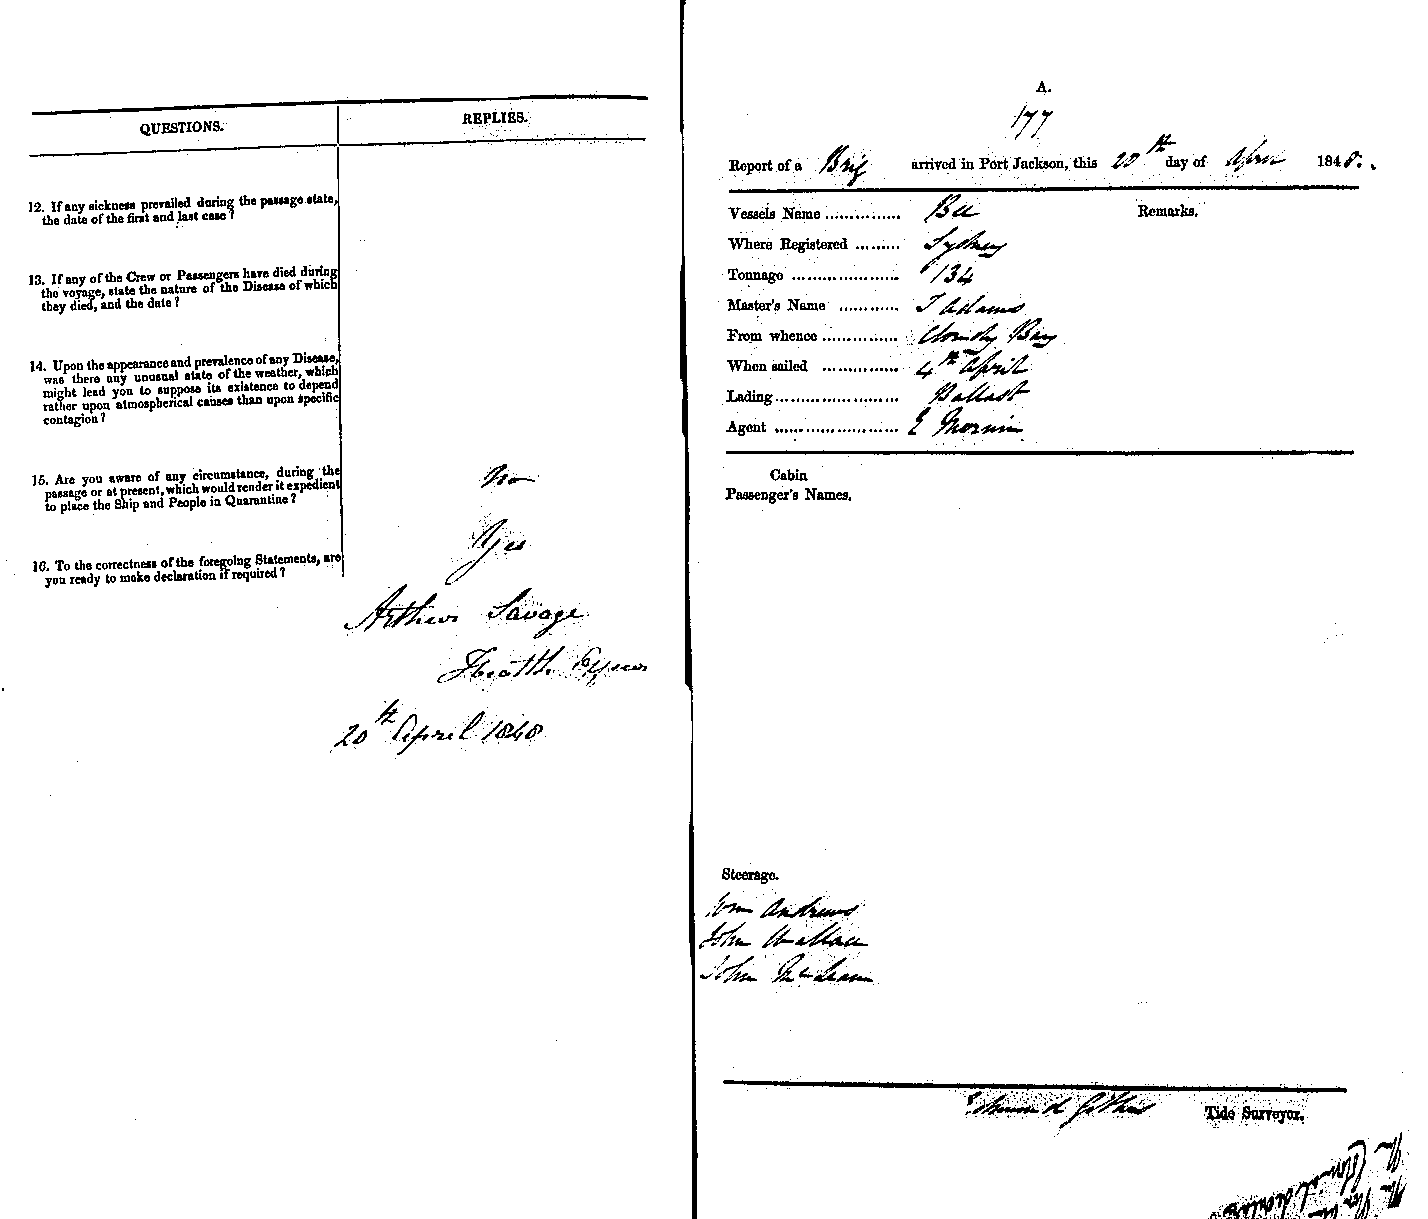 QUESTIONS.
REPLIES.
12. If any sickness prevailed during the passage state,
the date of the first and last case?
13. If any of the Crew or Passengers have died during
the voyage, state the nature of the Disease of which
they died, and the date?
14. Upon the appearance and prevalence of any Disease,
was there any unusual state of the weather, which
might lead you to suppose its existence to depend
rather upon atmospherical causes than upon specific
contagion?
15. Are you aware of any circumstance, during the
passage or at present, which would render it expedient
to place the Ship and People in Quarantine?
No
16. To the correctness of the foregoing Statements, are
you ready to make declaration if required?
Yes
Arthur Savage
Health Officer
20th April 1848
A.
177
Report of a Brig arrived in Port Jackson, this 20th day of April 1848.
Vessels Name ............... Bee
Remarks.
Where Registered ......... Sydney
Tonnage ..................... 134
Master's Name ............ J Adams
From whence ............... Cloudy Bay
When sailed ............... 4th April
Lading........................ Ballast
Agent ........................ E
Cabin
Passenger's Names.
Steerage.
Wm Andrews
John Wallace
John McLean
Tide Surveyor.